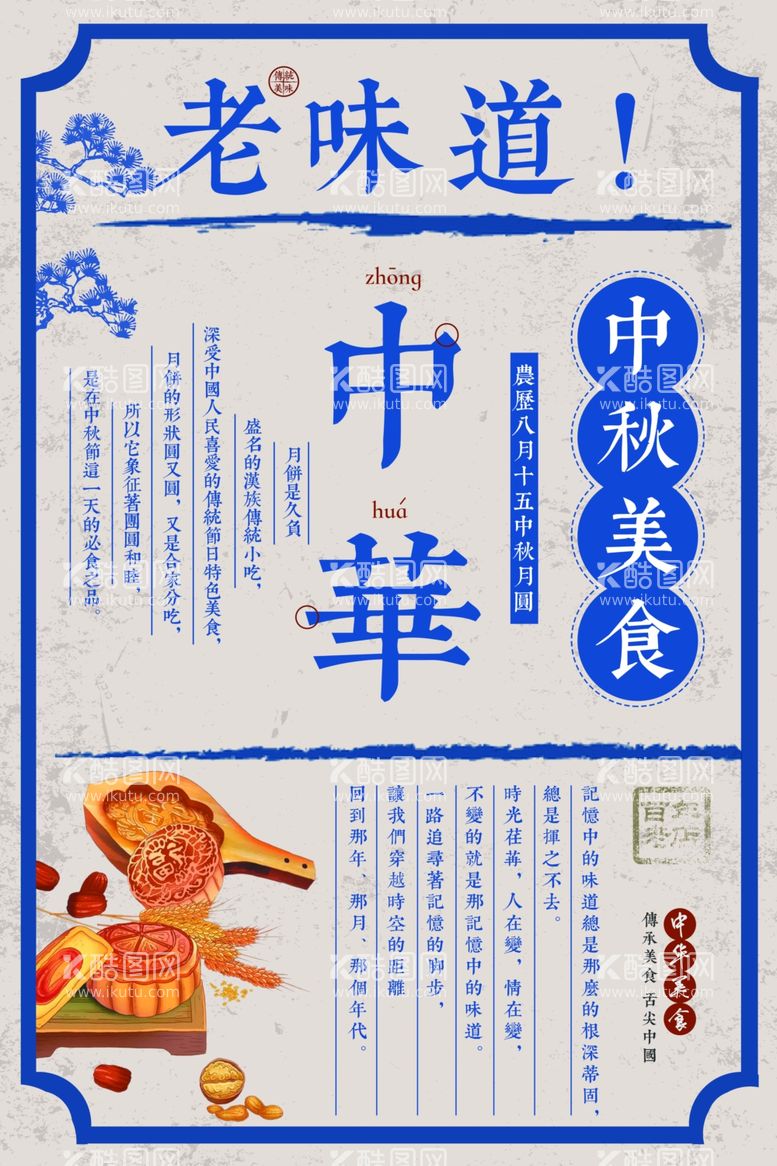 老味道！
傳統
美味
中秋美食
農歷八月十五中秋月圓
zhōng
中
huá
華
月餅是久負
盛名的漢族傳統小吃，
深受中國人民喜愛的傳統節日特色美食，
月餅的形狀圓又圓，又是合家分吃，
所以它象征著團圓和睦，
是在中秋節這一天的必食之品。
記憶中的味道總是那麼的根深蒂固，
總是揮之不去。
時光荏苒，人在變，情在變，
不變的就是那記憶中的味道。
一路追尋著記憶的脚步，
讓我們穿越時空的距離
回到那年、那月、那個年代。
百年
老店
中华美食
傳承美食 舌尖中國
酷图网
www.ikutu.com